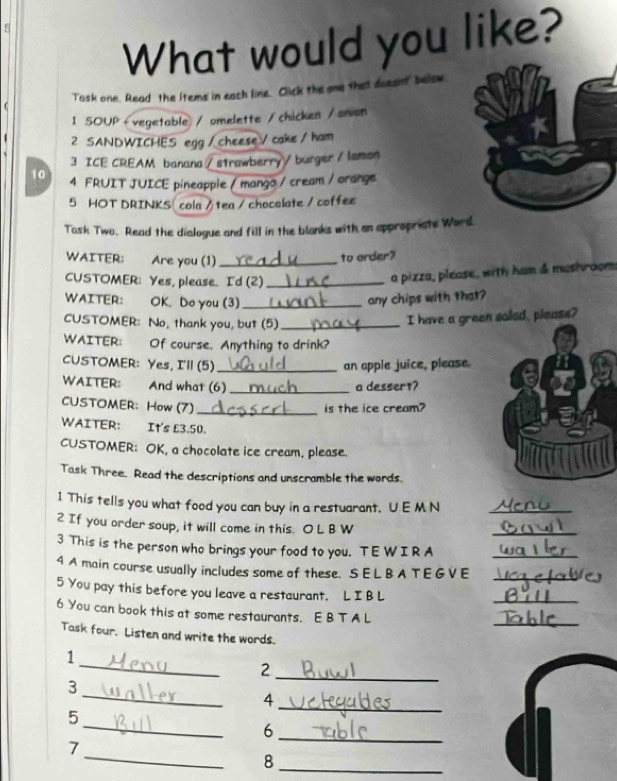 What would you like?
Task one. Read the items in each line. Click the one that doesn't below.
1 SOUP - vegetable / omelette / chicken / onion
2 SANDWICHES egg / cheese / cake / ham
3 ICE CREAM banana / strawberry / burger / lemon
10
4 FRUIT JUICE pineapple / mango / cream / orange
5 HOT DRINKS cola / tea / chocolate / coffee
Task Two. Read the dialogue and fill in the blanks with an appropriate Word.
WAITER: Are you (1) ready to order?
CUSTOMER: Yes, please. I'd (2) Line a pizza, please. with ham & mushrooms
WAITER: OK. Do you (3) want any chips with that?
CUSTOMER: No, thank you, but (5) may I have a green salad, please?
WAITER: Of course. Anything to drink?
CUSTOMER: Yes, I'll (5) would an apple juice, please.
WAITER: And what (6) much a dessert?
CUSTOMER: How (7) dessert is the ice cream?
WAITER: It's £3.50.
CUSTOMER: OK, a chocolate ice cream, please.
Task Three. Read the descriptions and unscramble the words.
1 This tells you what food you can buy in a restuarant. U E M N Menu
2 If you order soup, it will come in this. O L B W Bowl
3 This is the person who brings your food to you. T E W I R A waiter
4 A main course usually includes some of these. S E L B A T E G V E Vegetables
5 You pay this before you leave a restaurant. L I B L Bill
6 You can book this at some restaurants. E B T A L Table
Task four. Listen and write the words.
1 Menu 2 Buwl
3 Waiter 4 Vetegables
5 Bill 6 Table
7 8